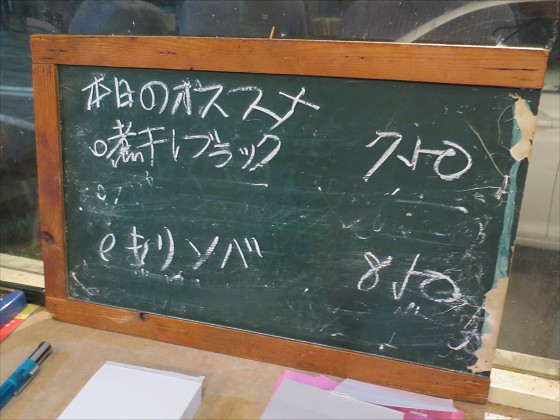 本日のオススメ
○煮干しブラック 750
○もりソバ 850